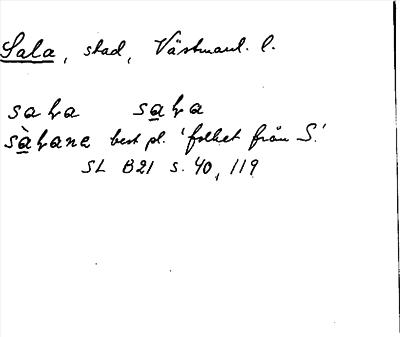 Sala, stad, Västmanl. l.
saɫa saɫa
sàɫane best pl. 'folket från S.'
SL B21 s. 40, 119